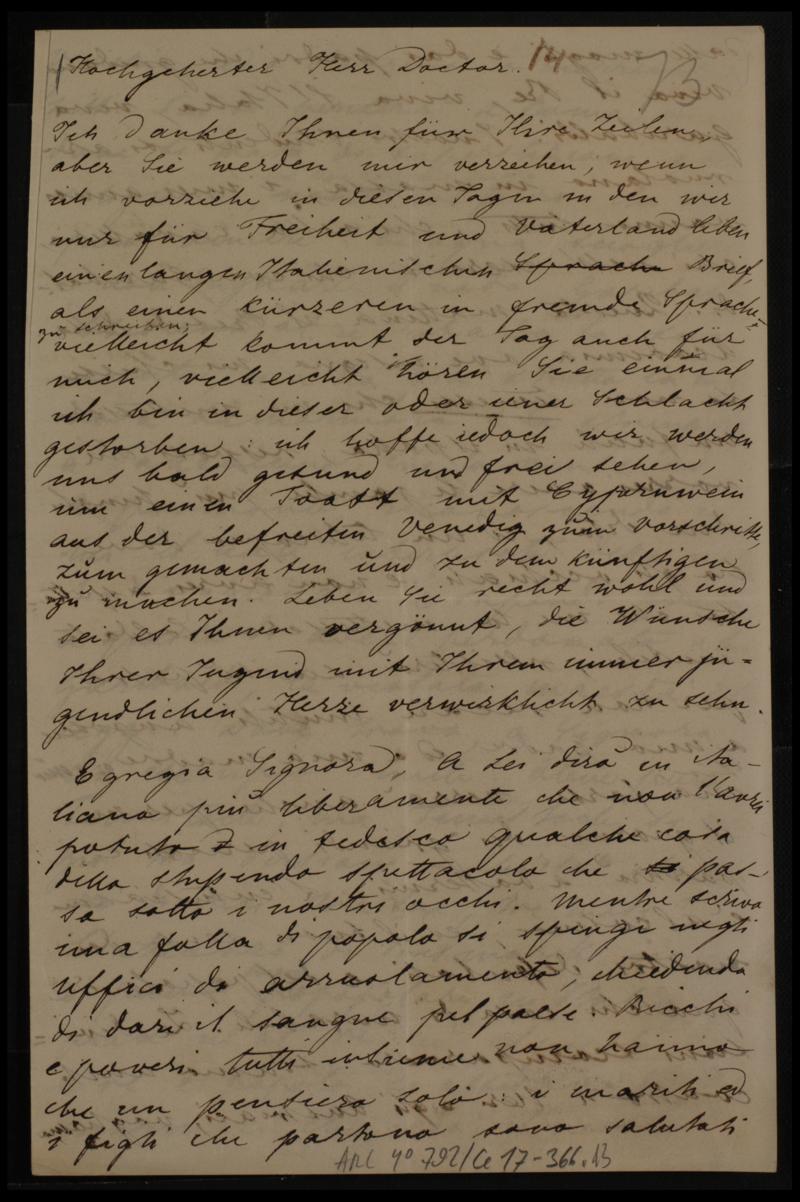 Hochgeherter Herr Doctor.
Ich danke Ihnen für Ihre Zeilen,
aber Sie werden mir verzeihen, wenn
ich vorziehe in diesen Tagen in den wir
nur für Freiheit und Vaterland leben
einen langen Italienischen Sprache Brief,
als einen kürzeren in fremde Sprache
zu schreiben;
vielleicht kommt der Tag auch für
mich, vielleicht hören Sie einmal
ich bin in dieser oder iener Schlacht
gestorben: ich hoffe iedoch wir werden
uns bald gesund und frei sehen,
um einen Toast mit Cypernwein
aus der befreiten Venedig zum Vorschritte,
zum gemachten und zu dem künftigen
zu machen. Leben Sie recht wohl und
sei es Ihnen vergönnt, die Wünsche
Ihrer Jugend mit Ihrem immer ju=
gendlichen Herze verwirklicht zu sehn.
Egregia Signora, A Lei dirò in ita-
liano più liberamente che non l'avrei
potuto in tedesco qualche cosa
dello stupendo spettacolo che si pas-
sa sotto i nostri occhi. Mentre scrivo
una folla di popolo si spinge negli
uffici di arruolamento, chiedendo
di dare il sangue pel paese. Ricchi
e poveri tutti insieme non hanno
che un pensiero solo: i mariti ed
i figli che partono sono salutati
ARC 4° 792/Ce 17-366.13